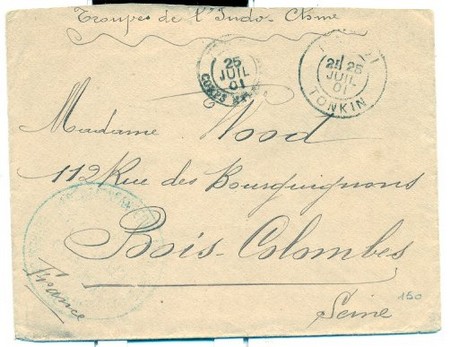 Troupes de l'Indo-Chine
25
JUIL
01
CORPS
25
JUIL
01
TONKIN
Madame Wood
112 Rue des Bourguignons
Bois-Colombes
France
Seine
150